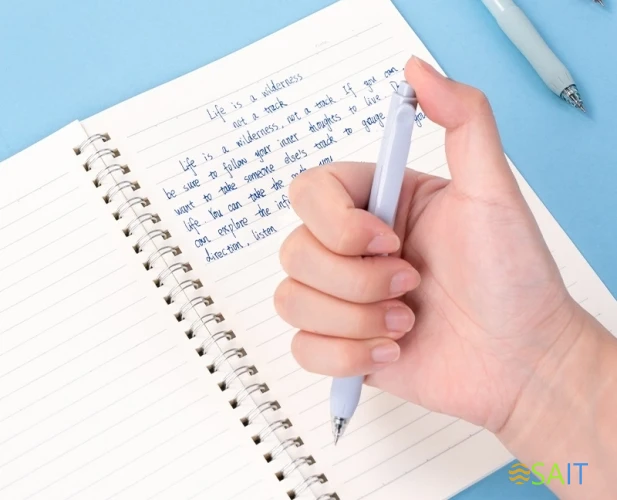 Life is a wilderness
not a track
Life is a wilderness, not a track If you can
be sure to follow your inner thoughts to live
want to take someone else's track to gauge
life You can take the
can explore the
direction, listen
SAIT